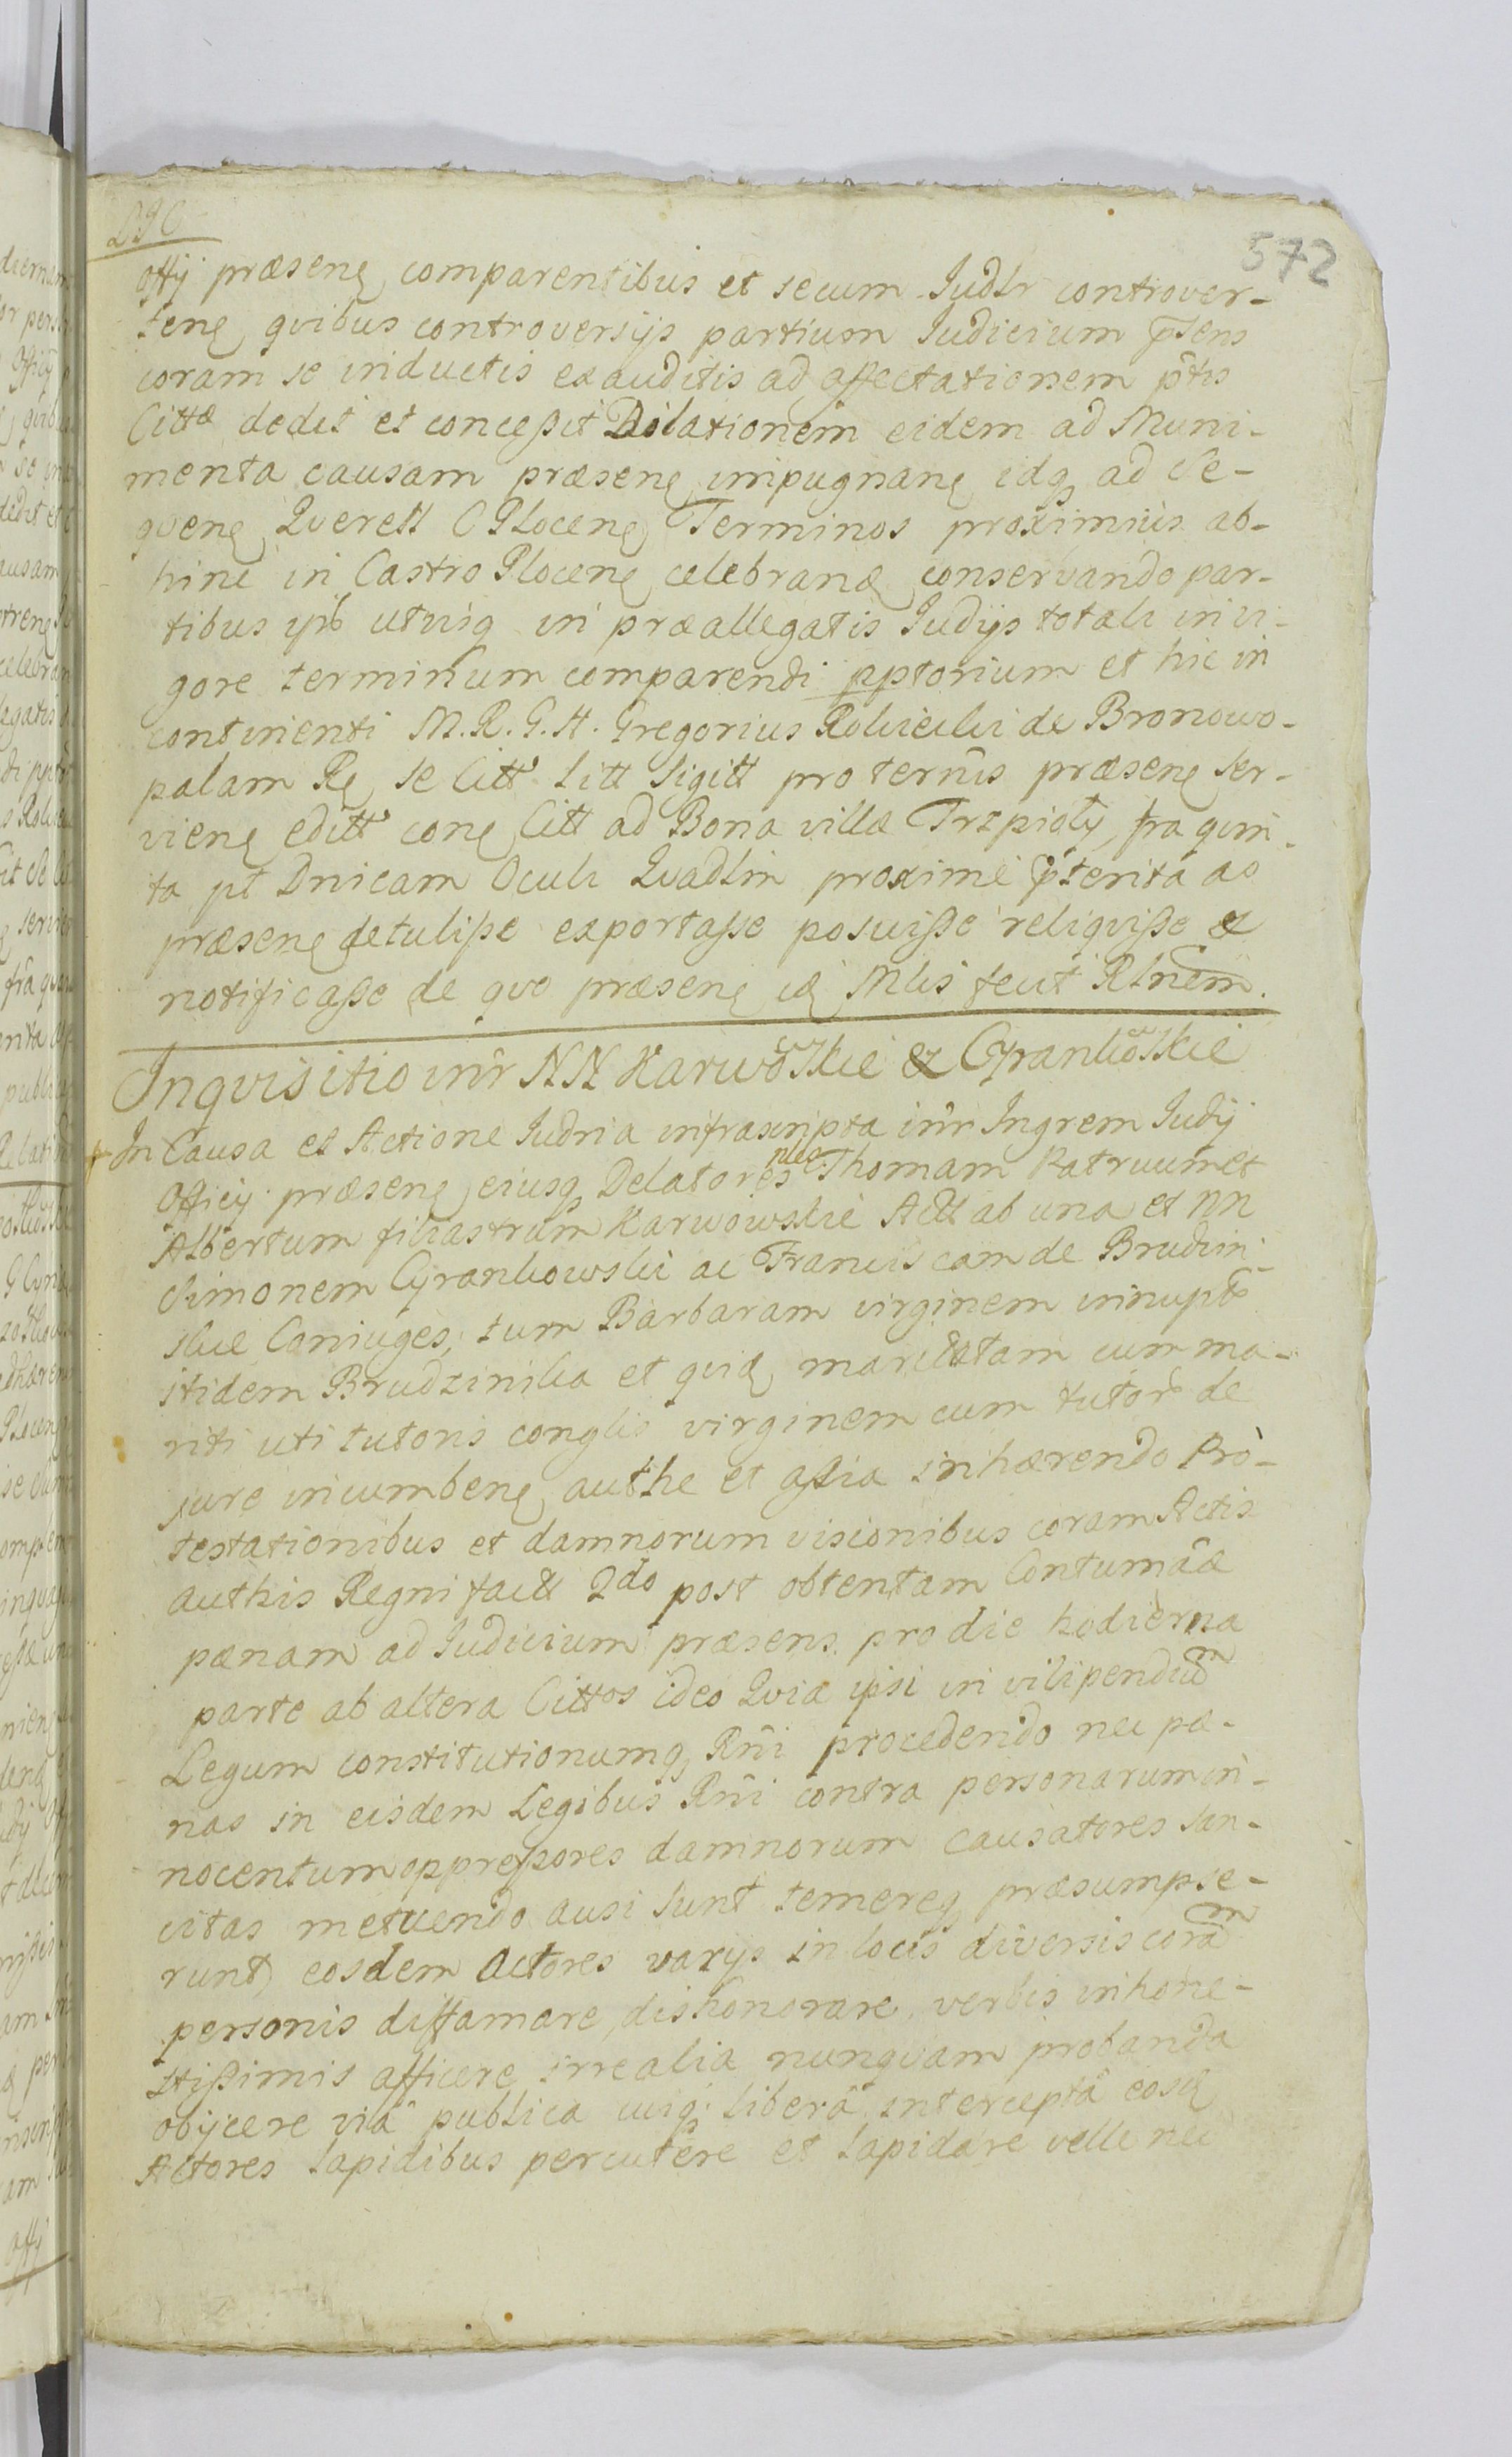 572
Offij præsenę comparentibus et secum Judlr controver-
tenę qvibus controversijs partium Judicium p̃sens
coram se inductis exauditis ad affectationem p̃tis
Cittæ dedit et conceßit Dilationem eidem ad Muni-
menta causam præsenę impugnanę idq̨ ad Se-
qvenę Qverell C Plocenę Terminos proximius ab-
hinc in Castro Plocenę celebranđ conservando par-
tibus utrisq in præallegatis Judijs totali in vi-
gore terminum comparendi pptorium et hic in
continenti M. R. G. H. Gregorius Rolicicki de Bronowo-
palam Rę se Citt Litt Sigitt pro terñis præsenę ser-
vienę editt conę Citt ad Bona villæ Trzpioły, fra qvin-
ta pt Dnicam Oculi Qvadlm proxime p̃terita ac
præsenę detuliße exportasse posuiße reliqviße et
notificaße de qvo præsenę Mlis fecit Rlnem.
Inqvisitio inr̃ NN Karwowskie et Cyrankowskie
In Causa et Actione Judria infrascripta inr̃ Ingrem Judij
Officij præsenę eiusq̨ Delatores nec Thomam Patruum et
Albertum filiastrum Karwowskie Actt ab una et NN
Simonem Cyrankowski ac Franciscam de Brudzin-
skie Coniuges, tum Barbaram virginem innuptã
itidem Brudzinska et qvidę maritatam cum ma-
riti uti tutoris conglis virginem cum tutore de
jure incumbenę authe et aßia inhærendo Pro-
testationibus et damnorum visionibus coram Actis
authis Regni factt 2do post obtentam Contumãæ
pænam ad Judicium præsens pro die hodierna
parte ab altera Cittos ideo Qvia ipsi in vilipendium
Legum constitutionumq̨ Rñi procedendo nec pæ-
nas in eisdem Legibus Rñi contra personarum in-
nocentum oppreßores damnorum causatores san-
citas metuendo ausi sunt temereq̨ præsumpse-
runt eosdem Actores varijs in locis diversis coram
personis diffamare, dishonorare, verbis inhone-
stißimis afficere irrealia nunqvam probanda
objicere viâ publica cuiq̨ liberâ interceptâ eosđ
Actores lapidibus percutere et lapidare velle nec